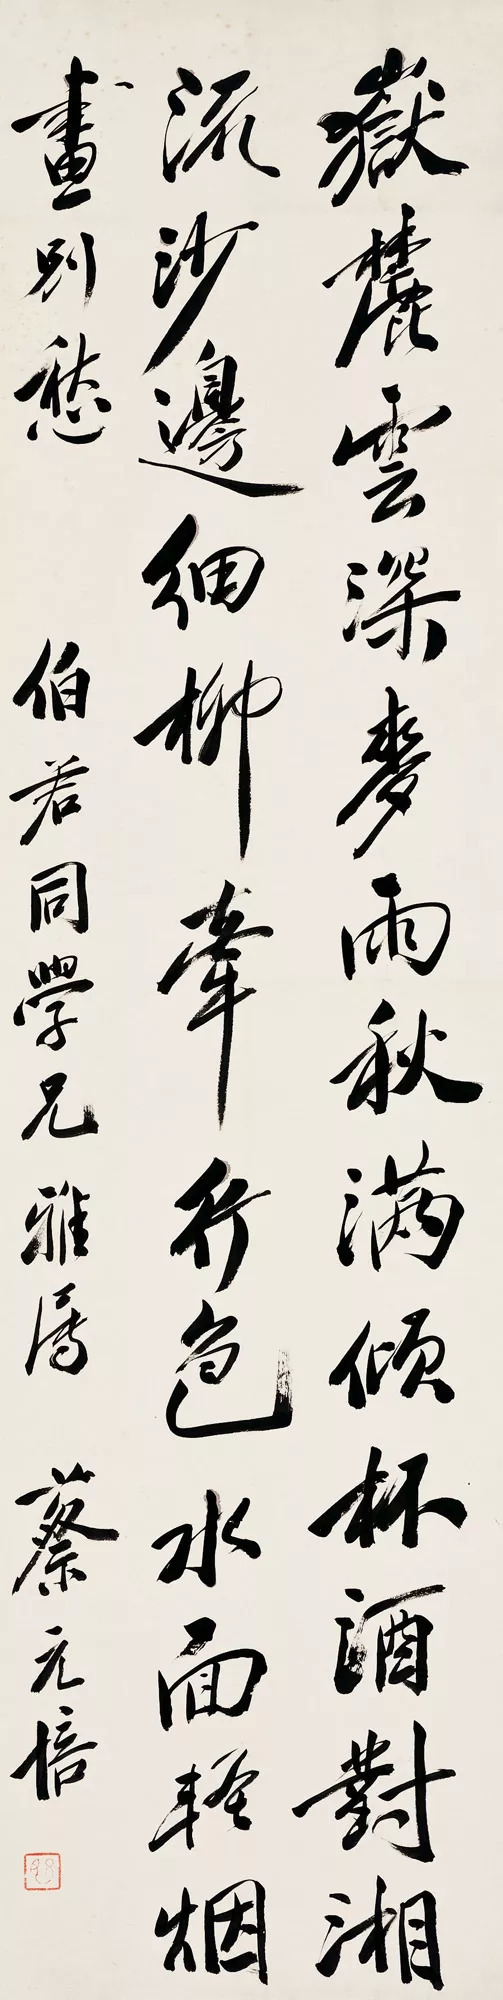 嶽麓雲深麥雨秋滿傾杯酒對湘
流沙邊細柳牽行色水面輕烟
畫別愁
伯若同學兄雅屬 蔡元培